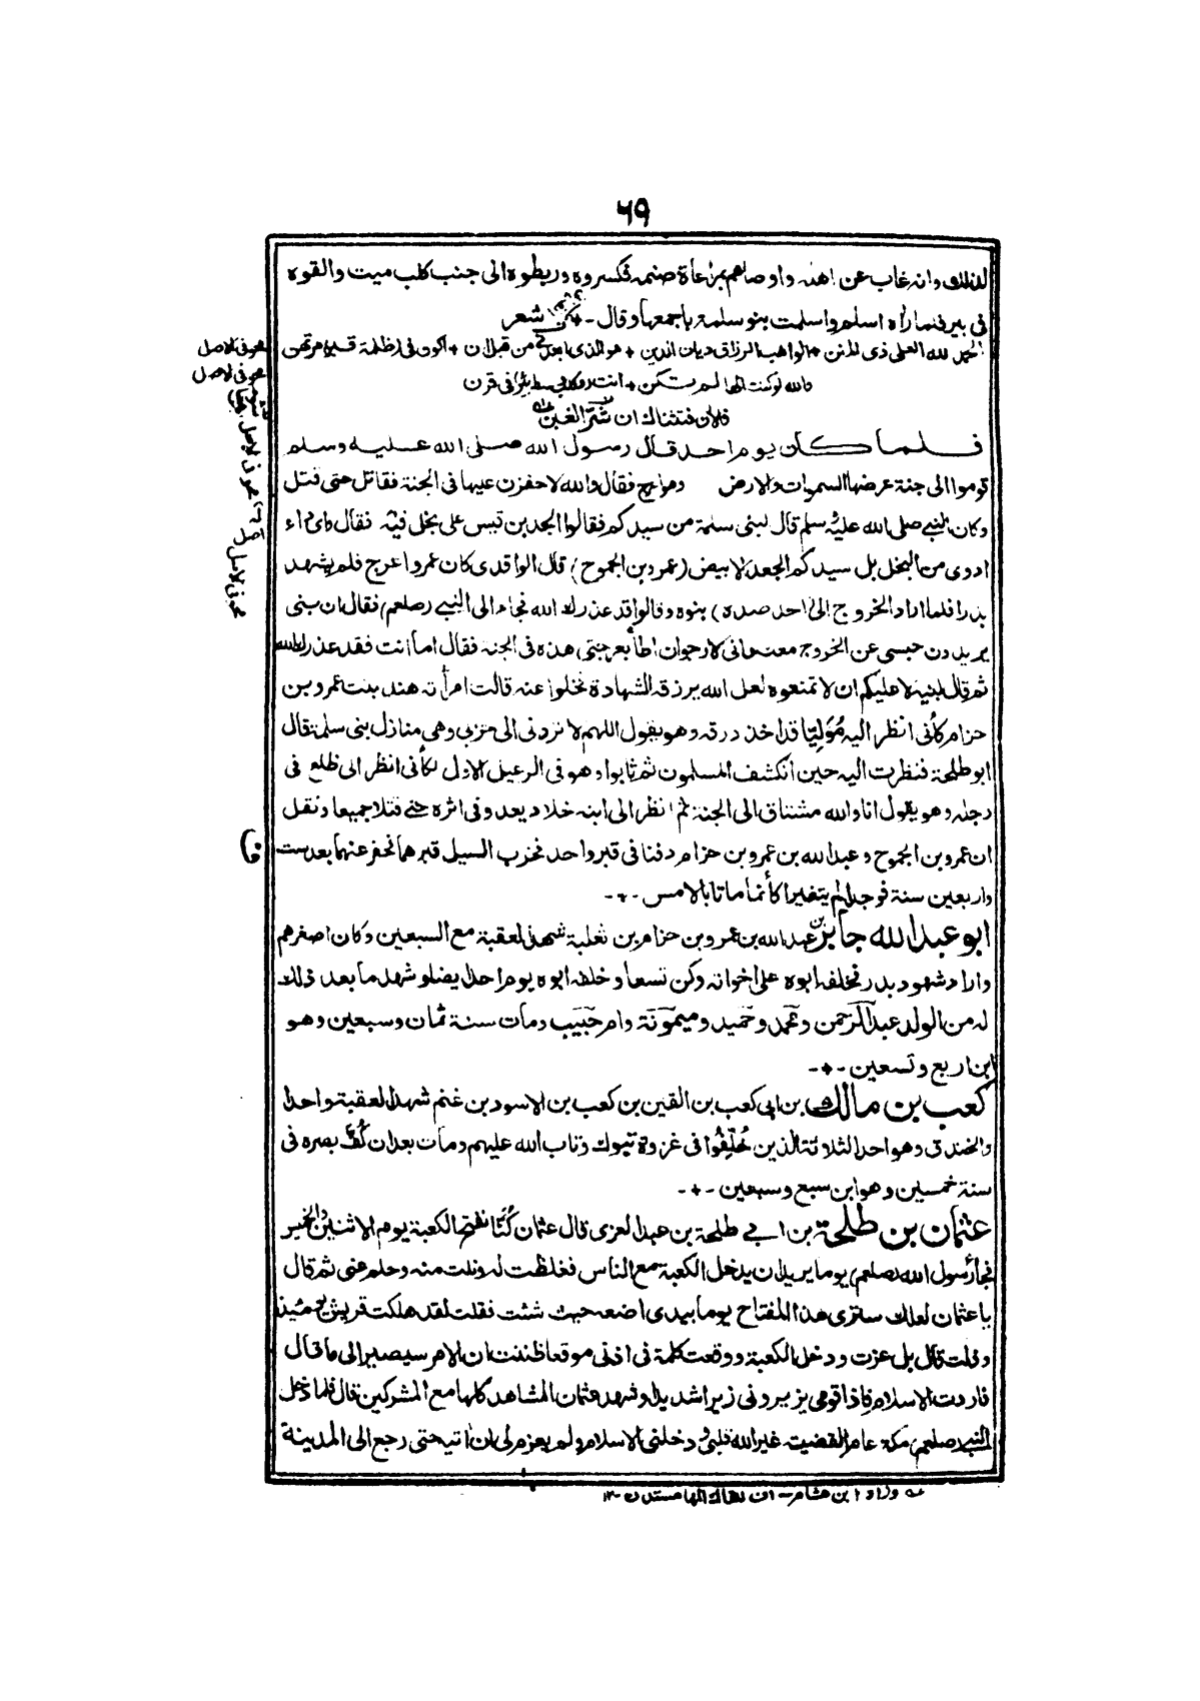 ٦٩
لذلك وانه غاب عن اهله واوصاهم براعاة صنمه فكسروه وربطوه الى جنب كلب ميت والقوه
فى بير فلما راٰه اسلم واسلمت بنو سلمة باجمعها وقال ـ شعر
الحمد لله العلى ذى المنن + الواهب الرزاق ديان الدين + هو الذى من قبل ان + اكون فى ظلمة قبر مرتهن
فالله لو كنت الها لم تكن + انت وكلب وسط بير فى قرن
فلان فتشناك ان شر الغبن
فلما كان يوم احد قال رسول الله صلى الله عليه وسلم
قوموا الى جنة عرضها السموات والارض وهو اعرج فقال والله لاحفزن عليها فى الجنة فقاتل حتى قتل
وكان النبى صلى الله عليه وسلم قال لبنى سلمة من سيدكم فقالوا الجد بن قيس على بخل فيه فقال واى داء
ادوى من البخل بل سيدكم الجعد الابيض (عمرو بن الجموح) قال الواقدى كان عمرو اعرج فلم يشهد
بدرا فلما اراد الخروج الى احد صده) بنوه وقالوا قد عذرك الله فجاء الى النبى (صلعم) فقال ان بنى
يريدون حبسى عن الخروج معك وانى لارجوان اطأ بعرجتى هذه فى الجنة فقال اما انت فقد عذرك الله
ثم قال لبنيه لا عليكم ان لا تمنعوه لعل الله يرزقه الشهادة فخلوا عنه قالت امرأته هند بنت عمرو بن
حزام كأنى انظر اليه مُوَلِّيًا قد اخذ درقه وهو يقول اللهم لا تردنى الى حزبى وهى منازل بنى سلمة قال
ابو طلحة فنظرت اليه حين انكشف المسلمون ثم ثابوا وهو فى الرعيل الاول لكأنى انظر الى ظلع فى
رجله وهو يقول انا والله مشتاق الى الجنة ثم انظر الى ابنه خلاد يعدو فى اثره حتى قتلا جميعا ونقل
ان عمرو بن الجموح وعبدالله بن عمرو بن حزام دفنا فى قبر واحد فخرب السيل قبرهما فحفر عنهما بعد ست
واربعين سنة فوجدا لم يتغيرا كأنما ماتا بالامس ـ
ابو عبدالله جابر بن عبدالله بن عمرو بن حزام بن ثعلبة شهد العقبة مع السبعين وكان اصغرهم
واراد شهود بدر فخلفه ابوه على اخواته وكن تسعا وخلفه ابوه يوم احد ايضا وشهد ما بعد ذلك
له من الولد عبدالرحمن ومحمد وحميد وميمونة وام حبيب ومات سنة ثمان وسبعين وهو
ابن اربع وتسعين ـ
كعب بن مالك بن ابى كعب بن القين بن كعب بن الاسود بن غنم شهد العقبة واحدا
والخندق وهو احد الثلاثة الذين خُلِّفُوا فى غزوة تبوك وتاب الله عليهم ومات بعد ان كُفَّ بصره فى
سنة خمسين وهو ابن سبع وسبعين ـ
عثمان بن طلحة بن ابى طلحة بن عبد العزى قال عثمان كُنّا نفتح الكعبة يوم الاثنين والخميس
فجأ رسول الله (صلعم) يوما يريد ان يدخل الكعبة مع الناس فغلظت له ونلت منه وحلم عنى ثم قال
يا عثمان لعلك سترى هذا المفتاح يوما بيدى اضعه حيث شئت فقلت لقد هلكت قريش يومئذ
وذلت قال بل عزت ودخل الكعبة ووقعت كلمة فى اذنى موقعا ظننت ان الامر سيصير الى ما قال
فاردت الاسلام فاذا قومى يزبرونى زبرا شديدا وشهد عثمان المشاهد كلها مع المشركين قال فلما دخل
النبى صلعم مكة عام القضية غير الله قلبى ودخلنى الاسلام ولم يعزم لى ان اٰتيه حتى رجع الى المدينة
وزاد ابن هشام ـ اف لمثواك الها مستدن
محو فى الاصل
محو فى الاصل
محو فى الاصل
محو فى الاصل